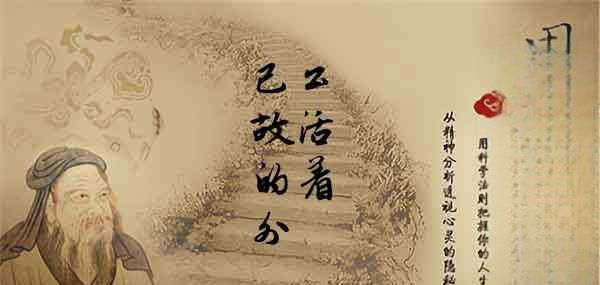 已故的外
公活着
从精神分析透视心灵的隐秘
用科学法则把握你的人生